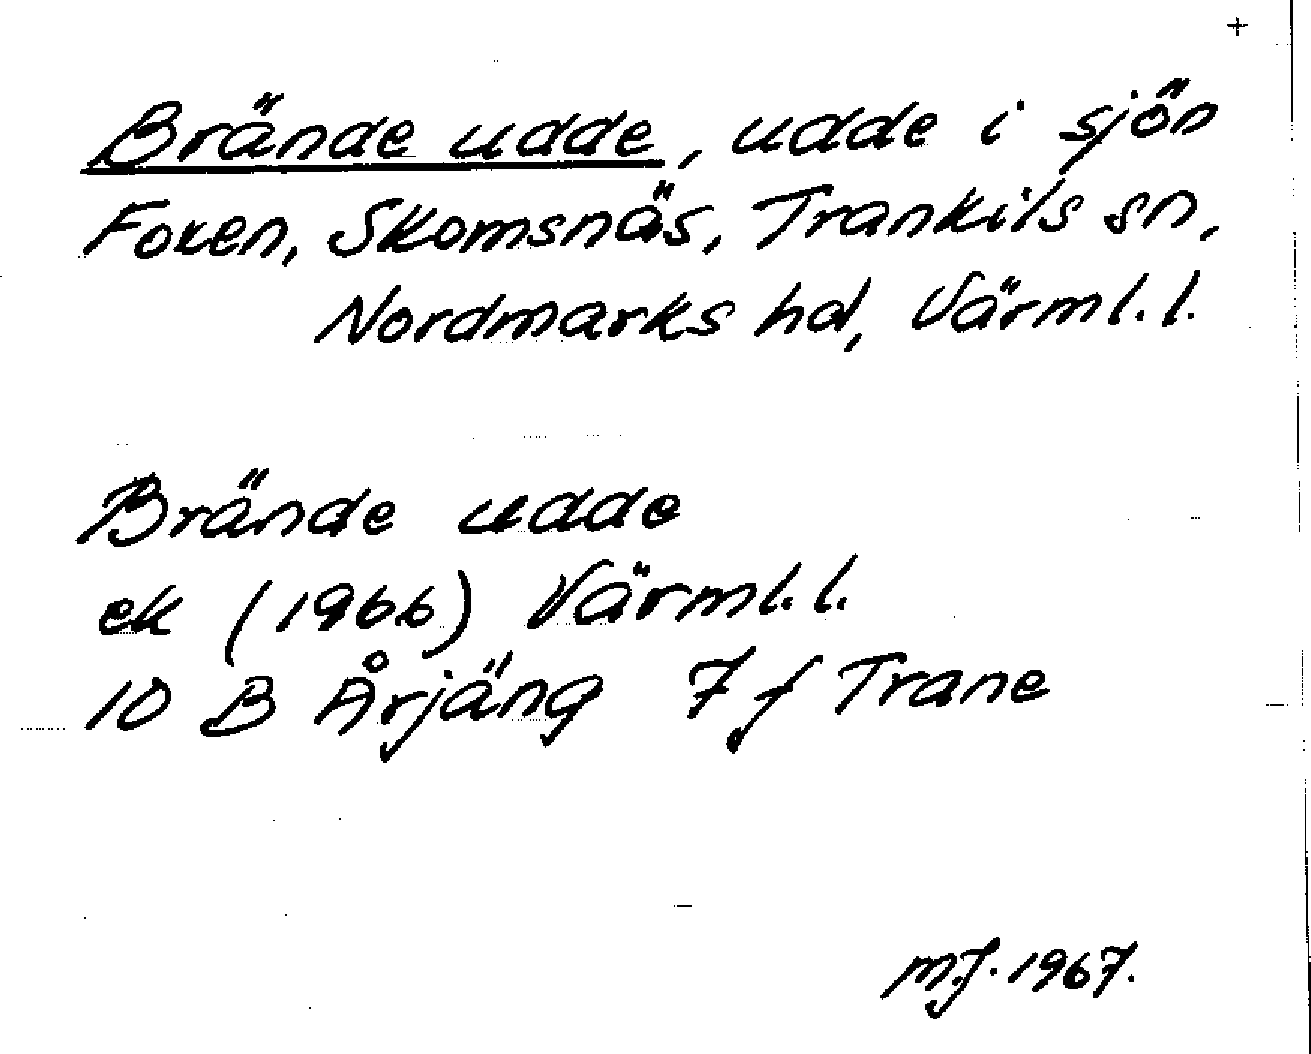 +
Brände udde, udde i sjön
Foxen, Skomsnäs, Trankils sn,
Nordmarks hd, Värml. l.
Brände udde
ek (1966) Värml. l.
10 B Årjäng 7 f Trane
M.J. 1967.